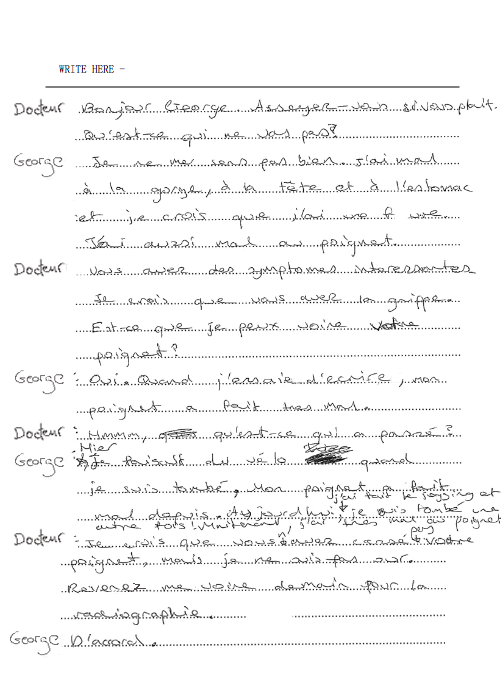 WRITE HERE -
Docteur Bonjour George. Asseyer-vous s'il vous plait.
Qu'est-ce qui ne vas pas?
George Je ne me sens pas bien. J'ai mal
à la gorge, à la tête et à l'estomac
et je crois que j'ai une
J'ai aussi mal au poignet.
Docteur Vous avez des symptomes interessantes
Je crois que vous avez la grippe.
Est-ce que je peux voire votre
poignet?
George : Oui. Quand j'essaie d'ecrire, mon
poignet a fait tres mal.
Docteur : Hmmm, qu'est-ce qui a passé?
George : Hier Je faisait du vélo quand
je suis tombé. Mon poignet a fait
mal depuis. Aujourd'hui j'ai fait le jogging et je suis tombé une
autre fois! Maintenant, j'ai très mal au poignet
Docteur : Je crois que vous avez cassé votre
poignet, mais je ne suis pas sur.
Revenez me voire demain pour la
radiographie.
George D'accord.